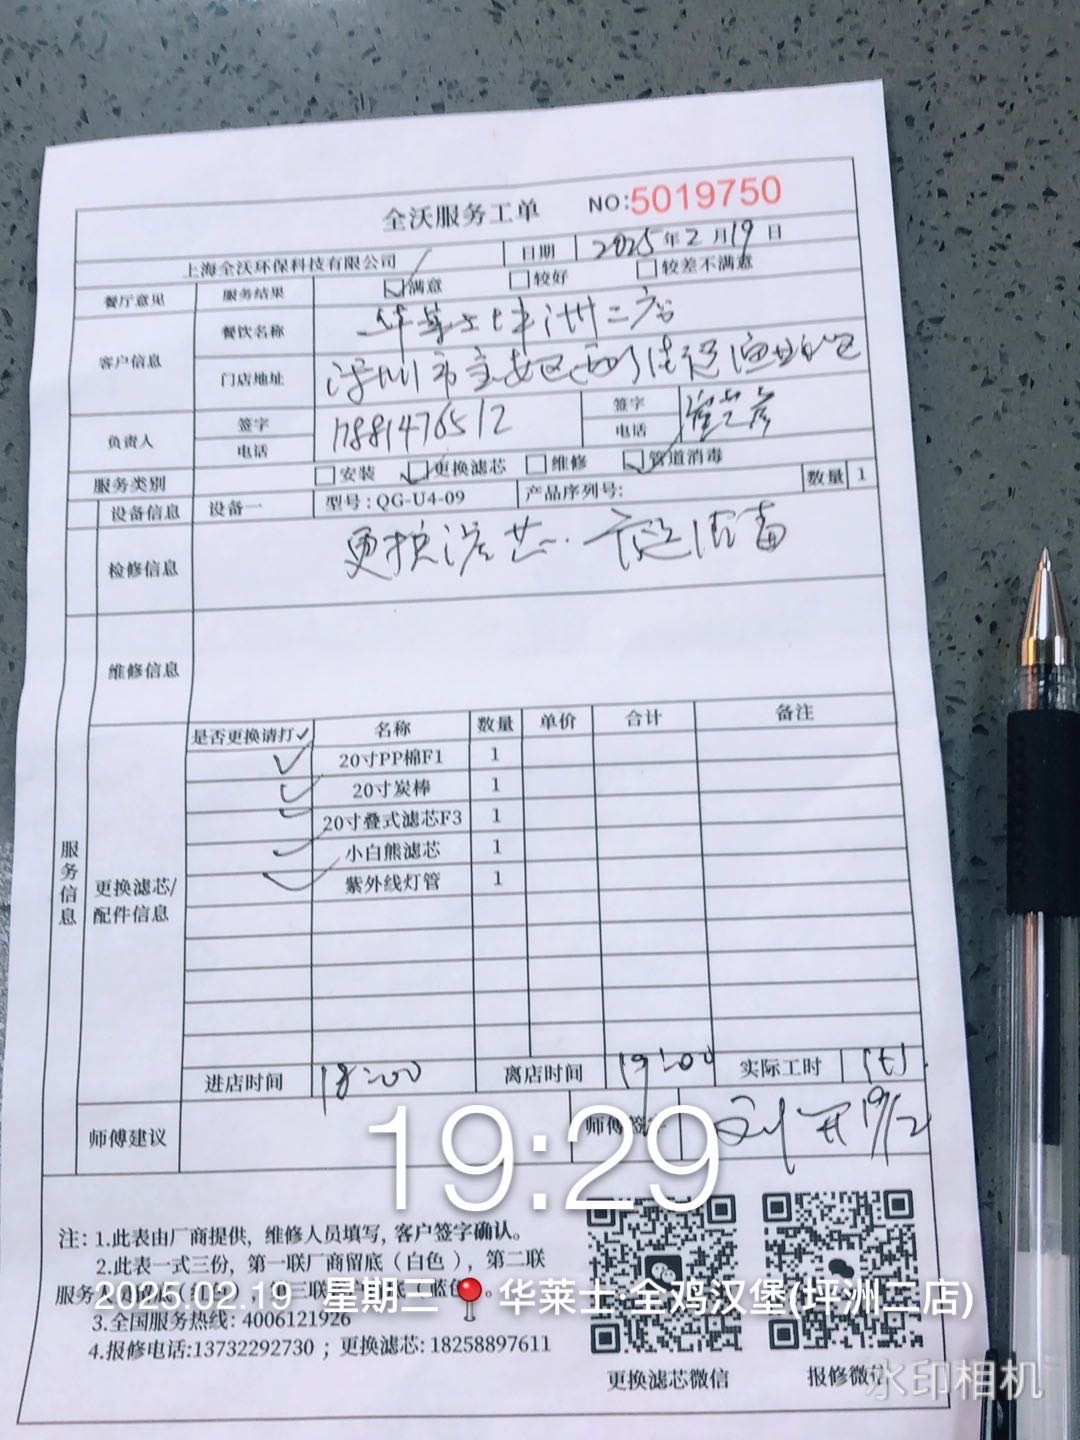 全沃服务工单 NO:5019750
上海全沃环保科技有限公司 日期 2025年2月19日
餐厅意见 服务结果 满意 较好 较差不满意
客户信息 餐饮名称 华莱士坪洲二店
门店地址 深圳市宝安区西乡街道
负责人 签字 电话 17881476512 签字 电话
服务类别 安装 更换滤芯 维修 管道消毒
设备信息 设备一 型号:QG-U4-09 产品序列号: 数量 1
检修信息 更换滤芯. 管道消毒
维修信息
服务信息
更换滤芯/配件信息
是否更换请打✓ 名称 数量 单价 合计 备注
✓ 20寸PP棉F1 1
✓ 20寸炭棒 1
✓ 20寸叠式滤芯F3 1
✓ 小白熊滤芯 1
✓ 紫外线灯管 1
进店时间 18:00 离店时间 19:00 实际工时
师傅建议 师傅签字 19/2
19:29
注: 1.此表由厂商提供, 维修人员填写, 客户签字确认。
2.此表一式三份, 第一联厂商留底(白色), 第二联
服务
2025.02.19 星期三 华莱士·全鸡汉堡(坪洲二店)
3.全国服务热线: 4006121926
4.报修电话:13732292730 ; 更换滤芯: 18258897611
更换滤芯微信 报修微信
水印相机